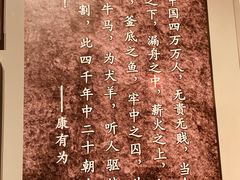 中国四万万人，无贵无贱，当
之下，漏舟之中，薪火之上，
釜底之鱼，牢中之囚，
牛马，为犬羊，听人驱
割，此四千年中二十朝
——康有为